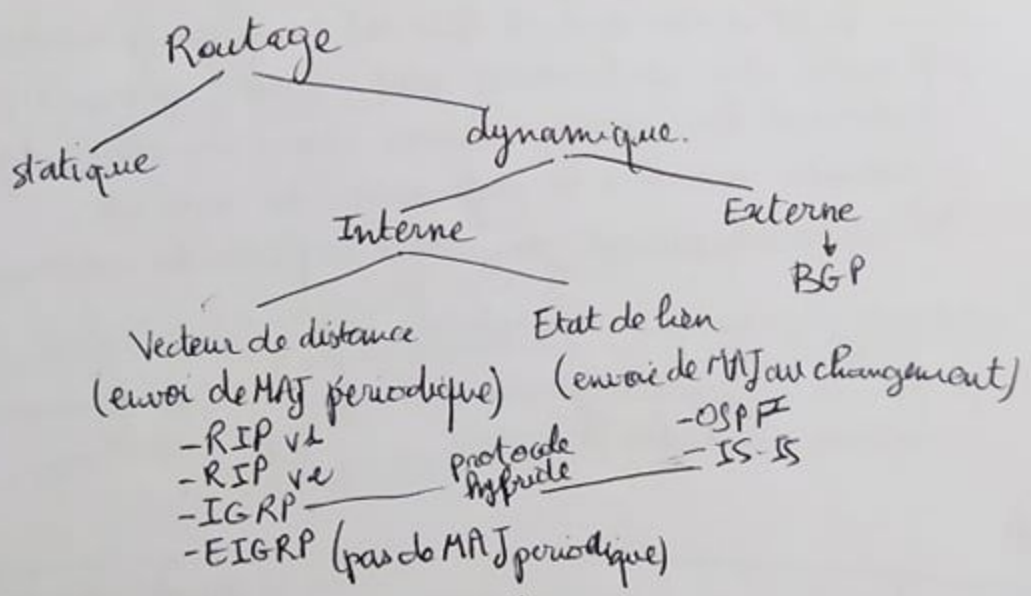 Routage
statique
dynamique.
Interne
Externe
BGP
Vecteur de distance
(envoi de MAJ périodique)
- RIP v1
- RIP v2
- IGRP
- EIGRP (pas de MAJ periodique)
protocole
hybride
Etat de lien
(envoi de MAJ au changement)
- OSPF
- IS-IS